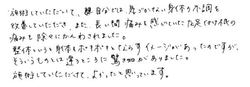 施術していただいて、自分では、気づかない身体の不調を
改善していただき、また、長い間 痛みを感じていた足(付け根)の
痛みも 除々にかんわされました。
整体というと骨をボキボキとならすイメージがあったのですが、
そういうものとは違うところに驚きがありました。
施術していただけて、よかったと思っています。